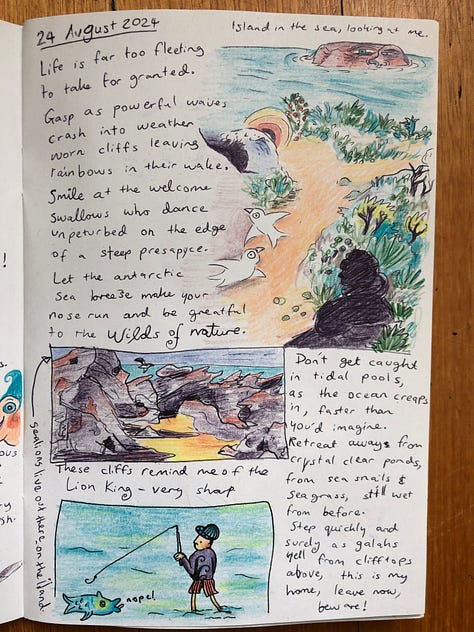 24 August 2024
Island in the sea, looking at me.
Life is far too fleeting
to take for granted.
Gasp as powerful waves
crash into weather
worn cliffs leaving
rainbows in their wake.
Smile at the welcome
swallows who dance
unpeturbed on the edge
of a steep presapyce.
Let the antarctic
sea breaze make your
nose run and be greatful
to the wilds of nature.
These cliffs remind me of the
Lion King - very sharp
sealions live out there - on the island.
nope!
Don't get caught
in tidal pools,
as the ocean creaps
in, faster than
you'd imagine.
Retreat aways from
crystal clear ponds,
from sea snails &
sea grass, still wet
from before.
Step quickly and
surely as galahs
yell from clifftops
above, this is my
home, leave now,
beware!